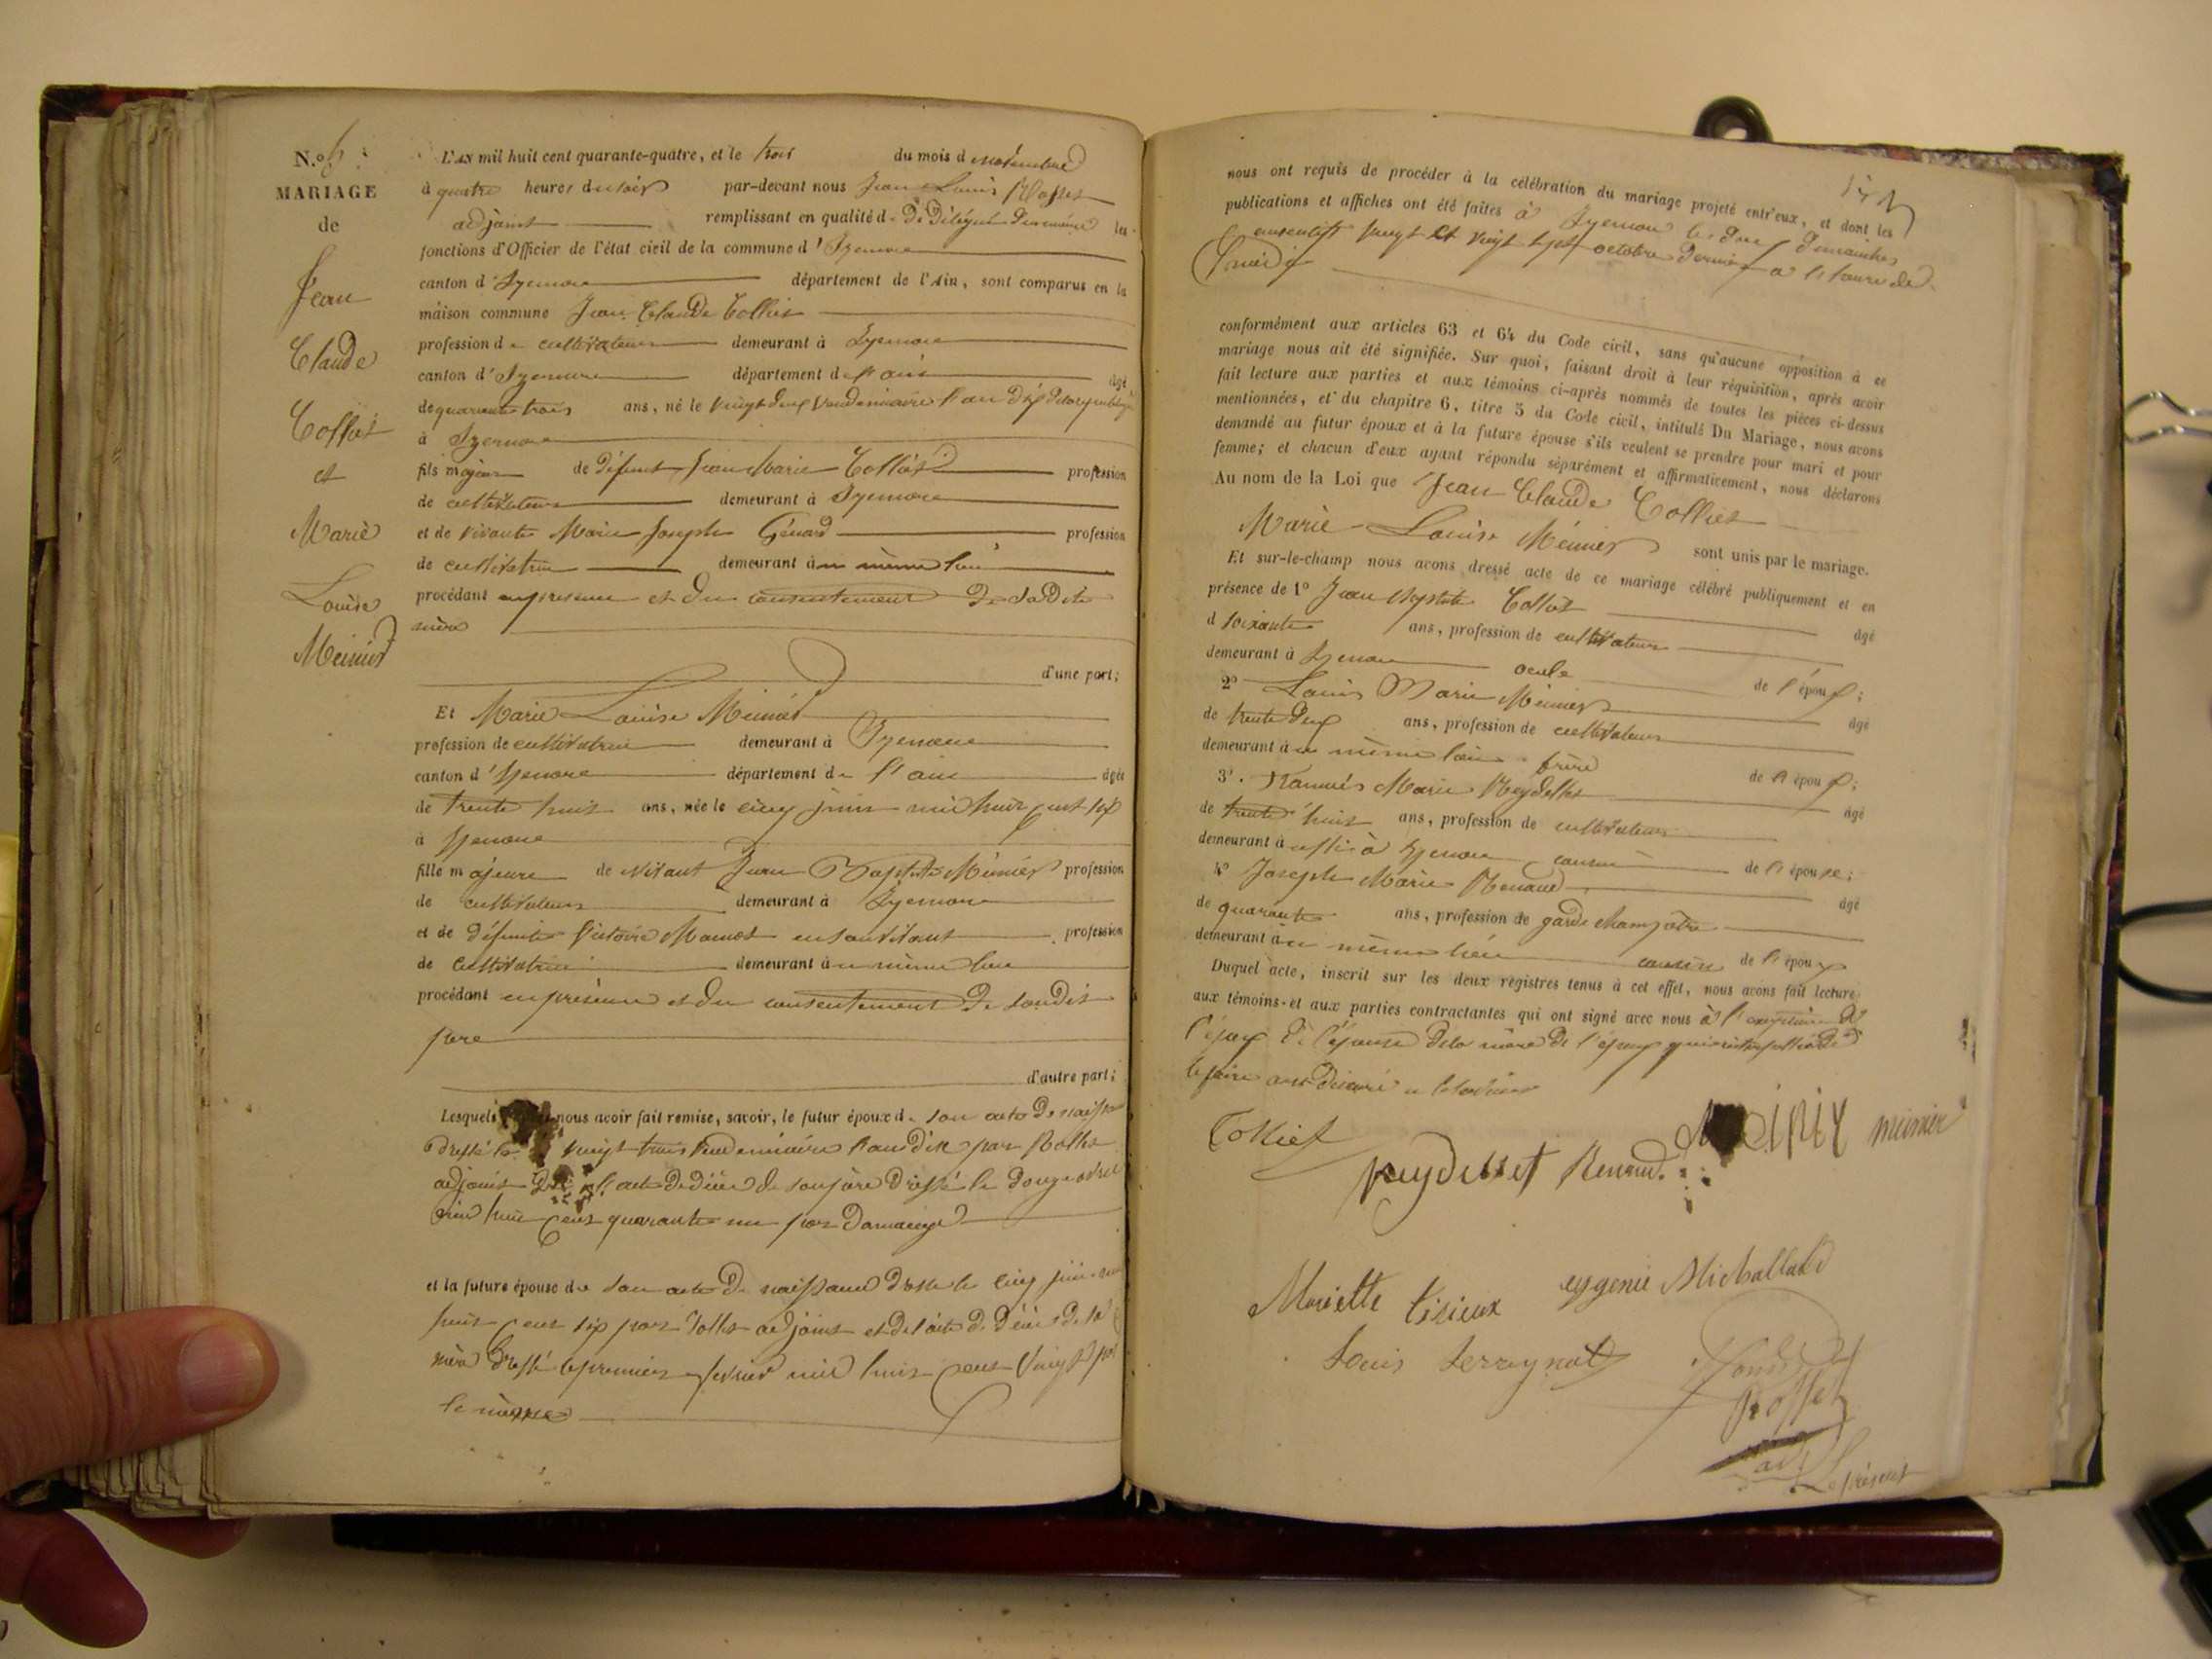 N.o 6
MARIAGE
de
Jean
Claude
Colliet
et
Marie
Louise
Meunier
L'AN mil huit cent quarante-quatre, et le trois du mois d novembre
à quatre heures du soir par-devant nous Jean Louis Rosset
adjoint remplissant en qualité de Délégué du maire les
fonctions d'Officier de l'état civil de la commune d'Izernore
canton d'Izernore département de l'Ain, sont comparus en la
maison commune Jean Claude Colliet
profession de cultivateur demeurant à Izernore
canton d'Izernore département de l'ain âgé
de quarante trois ans, né le vingt deux vendemiaire l'an dix
à Izernore
fils majeur de défunt Jean Marie Colliet profession
de cultivateur demeurant à Izernore
et de vivante Marie Joseph Génard profession
de cultivatrice demeurant au même lieu
procédant en presence et du consentement de sadite
mère
d'une part;
Et Marie Louise Meunier
profession de cultivatrice demeurant à Izernore
canton d'Izernore département de l'ain âgée
de trente huit ans, née le cinq juin mil huit cent six
à Izernore
fille majeure de vivant Jean Baptiste Meunier profession
de cultivateur demeurant à Izernore
et de défunte Victoire en son vivant profession
de cultivatrice demeurant au même lieu
procédant en présence et du consentement de son dit
père
d'autre part;
Lesquels nous avoir fait remise, savoir, le futur époux de son acte de naissance
dressé le vingt trois vendemiaire l'an dix par
adjoint l'acte de décès de son père dressé le douze
mil huit cent quarante un par
et la future épouse de son acte de naissance dressé le cinq juin mil
huit cent six par adjoint et de l'acte de décès de sa
mère dressé le premier fevrier mil huit cent vingt
le même
nous ont requis de procéder à la célébration du mariage projeté entr'eux, et dont les
publications et affiches ont été faites à Izernore les deux dimanches
consecutifs vingt et vingt sept octobre dernier à l'heure de
midi
conformément aux articles 63 et 64 du Code civil, sans qu'aucune opposition à ce
mariage nous ait été signifiée. Sur quoi, faisant droit à leur réquisition, après avoir
fait lecture aux parties et aux témoins ci-après nommés de toutes les pièces ci-dessus
mentionnées, et du chapitre 6, titre 5 du Code civil, intitulé Du Mariage, nous avons
demandé au futur époux et à la future épouse s'ils veulent se prendre pour mari et pour
femme; et chacun d'eux ayant répondu séparément et affirmativement, nous déclarons
Au nom de la Loi que Jean Claude Colliet
Marie Louise Meunier sont unis par le mariage.
Et sur-le-champ nous avons dressé acte de ce mariage célébré publiquement et en
présence de 1o Jean Baptiste Colliet âgé
d soixante ans, profession de cultivateur
demeurant à Izernore oncle de l'époux;
2o Louis Marie Meunier âgé
de trente deux ans, profession de cultivateur
demeurant au même lieu frère de l'épouse;
3o. François Marie Reydellet âgé
de trente huit ans, profession de cultivateur
demeurant à Izernore cousin de l'épouse;
4o Joseph Marie Renaud âgé
de quarante ans, profession de garde champêtre
demeurant au même lieu cousin de l'époux
Duquel acte, inscrit sur les deux registres tenus à cet effet, nous avons fait lecture
aux témoins et aux parties contractantes qui ont signé avec nous à l'exception de
l'époux de l'épouse de la mère de l'époux
le faire
Colliet
Reydellet Renaud. meunier
Mariette Tisieux eugenie Michallard
Louis
Rosset
adj